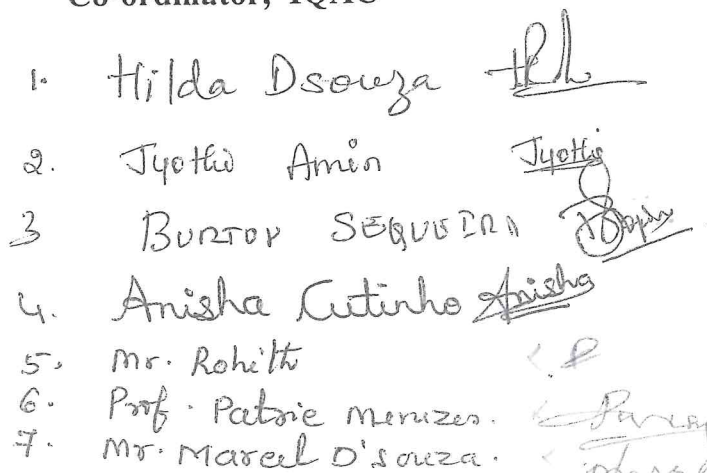 Co-ordinator, IQAC
1. Hilda Dsouza
2. Jyothi Amin Jyothi
3 BURTON SEQUEIRA
4. Anisha Cutinho Anisha
5. Mr. Rohith
6. Prof. Patric Menezes.
7. Mr. Marcel D'souza.